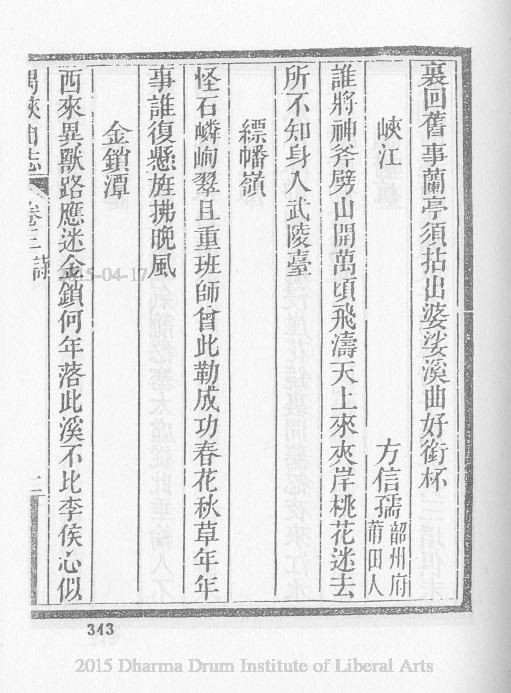 裏回舊事蘭亭須拈出婆娑溪曲好銜杯
峽江
方信孺韶州府莆田人
誰將神斧劈山開萬頃飛濤天上來夾岸桃花迷去
所不知身入武陵臺
縹幡嶺
怪石嶙峋翠且重班師曾此勒成功春花秋草年年
事誰復懸旌拂晚風
金鎖潭
西來異獸路應迷金鎖何年落此溪不比李侯心似
禺峽山志
卷三
詩
二
2015-04-17
343
2015 Dharma Drum Institute of Liberal Arts